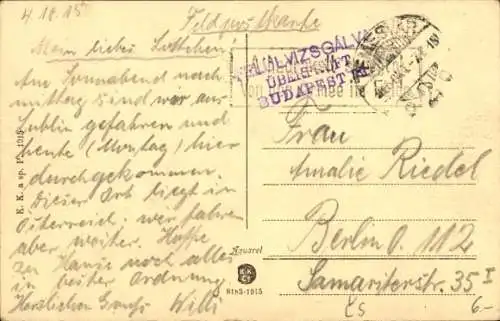 4.10.15
Feldpostkarte
Mein liebes Lottchen!
Am Sonnabend nach-
mittag sind wir aus
Lublin gefahren und
heute (Montag) hier
durchgekommen.
Dieser Ort liegt in
Österreich, wir fahren
aber weiter. Hoffe
zu Hause noch alles
in bester Ordnung.
Herzlichen Gruß Willi
FELÜLVIZSGÁLVA
ÜBERPRÜFT
BUDAPEST
TEMESVÁR
Frau
Amalie Riedel
Berlin O. 112
Samariterstr. 35 I
Aquarel
K.K.
6183-1915
6-